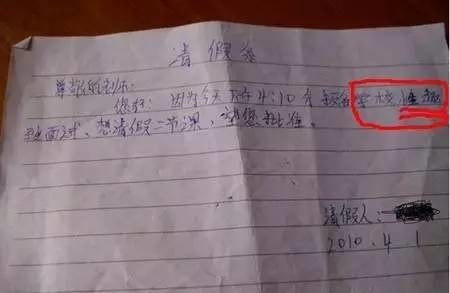 请假条
尊敬的老师：
您好：因为今天下午4:10分 我在学校性趣
班面试，想请假一节课，望您批准。
请假人：
2010.4.1